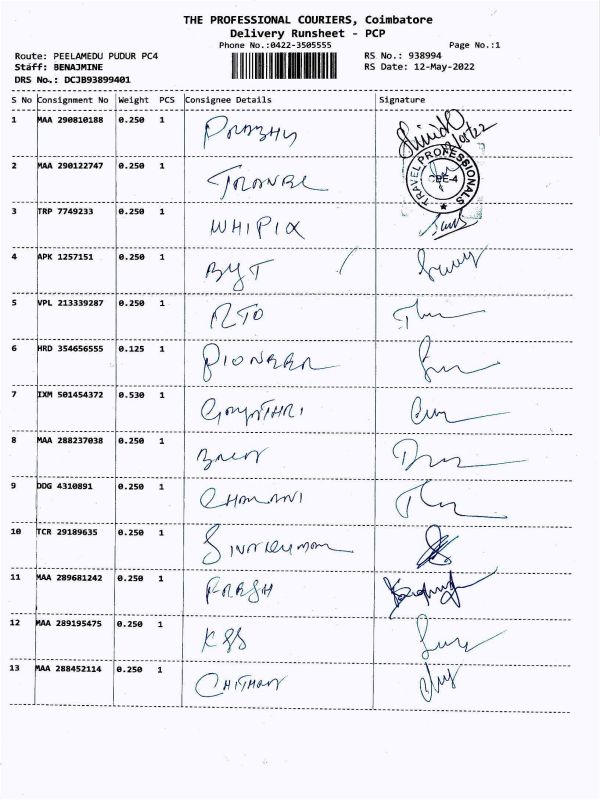 THE PROFESSIONAL COURIERS, Coimbatore
Delivery Runsheet - PCP
Phone No.:0422-3505555 Page No.:1
Route: PEELAMEDU PUDUR PC4 RS No.: 938994
Staff: BENAJMINE RS Date: 12-May-2022
DRS No.: DCJB93899401
S No Consignment No Weight PCS Consignee Details Signature
1 MAA 290810188 0.250 1 PRABHU
2 MAA 290122747 0.250 1
TRAVEL PROFESSIONALS
CBE-4
3 TRP 7749233 0.250 1 WHIPIX
4 APK 1257151 0.250 1 BYT
5 VPL 213339287 0.250 1 RTO
6 HRD 354656555 0.125 1 PIONEER
7 IXM 501454372 0.530 1 GAYATHRI
8 MAA 288237038 0.250 1
9 DDG 4310891 0.250 1
10 TCR 29189635 0.250 1 SIVAKUMAR
11 MAA 289681242 0.250 1
12 MAA 289195475 0.250 1
13 MAA 288452114 0.250 1